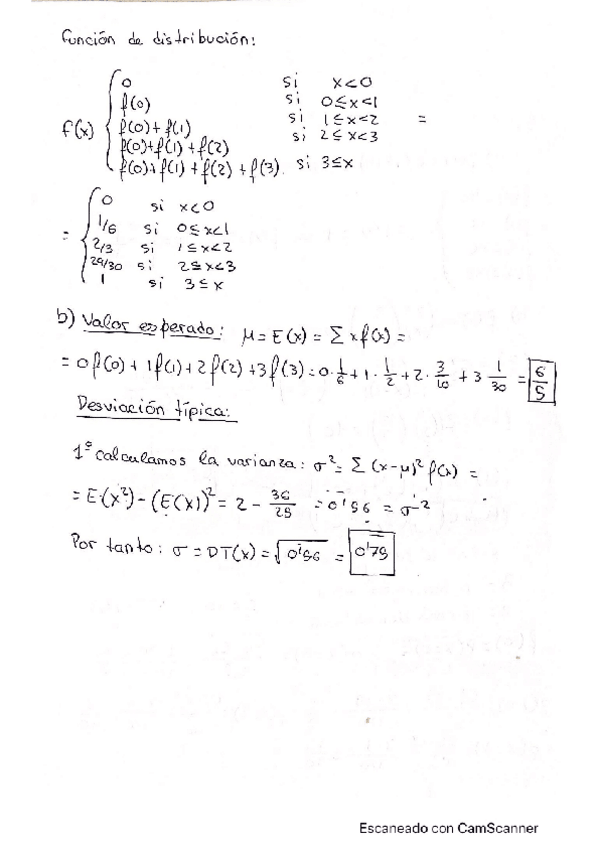 Función de distribución:
0 si x<0
f(0) si 0≤x<1
F(x) f(0)+f(1) si 1≤x<2 =
f(0)+f(1)+f(2) si 2≤x<3
f(0)+f(1)+f(2)+f(3). si 3≤x
0 si x<0
1/6 si 0≤x<1
= 2/3 si 1≤x<2
29/30 si 2≤x<3
1 si 3≤x
b) Valor esperado: μ=E(x)=Σxf(x)=
=0f(0)+1f(1)+2f(2)+3f(3)=0·1/6+1·1/2+2·3/10+3 1/30=6/5
Desviación típica:
1º calculamos la varianza: σ²=Σ(x-μ)²f(x)=
=E(x²)-(E(x))²=2-36/25=0'56=σ²
Por tanto: σ=DT(x)=√0'56=0'75
Escaneado con CamScanner